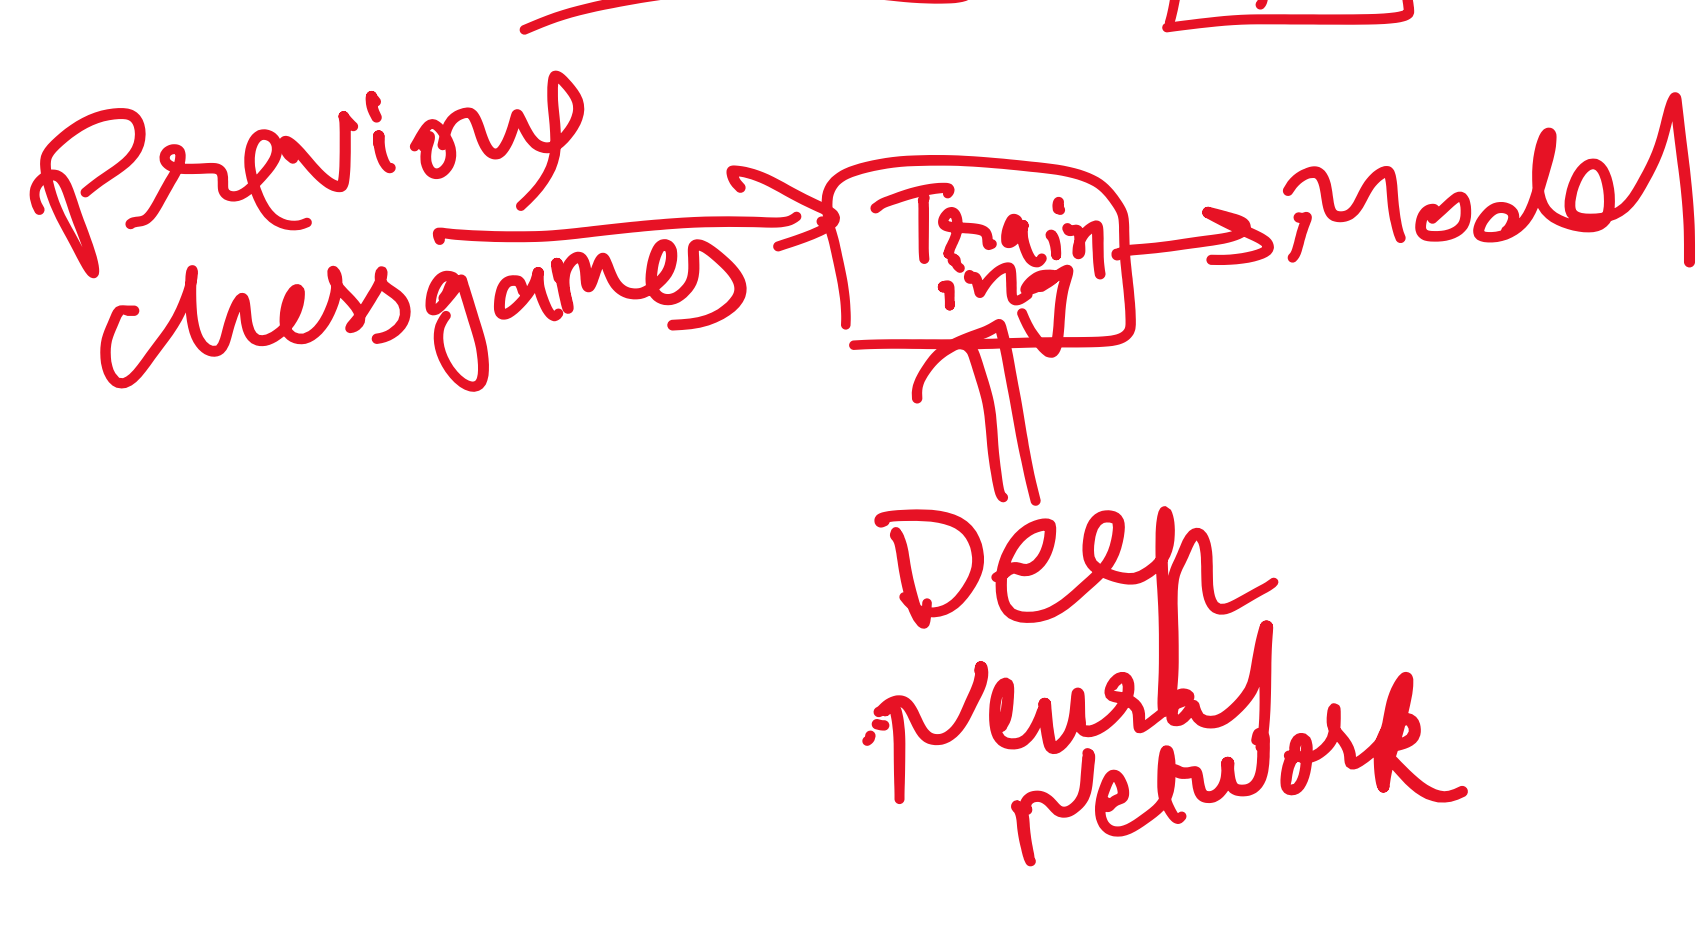 Previous
chessgames
Train
ing
Model
Deep
Neural
network